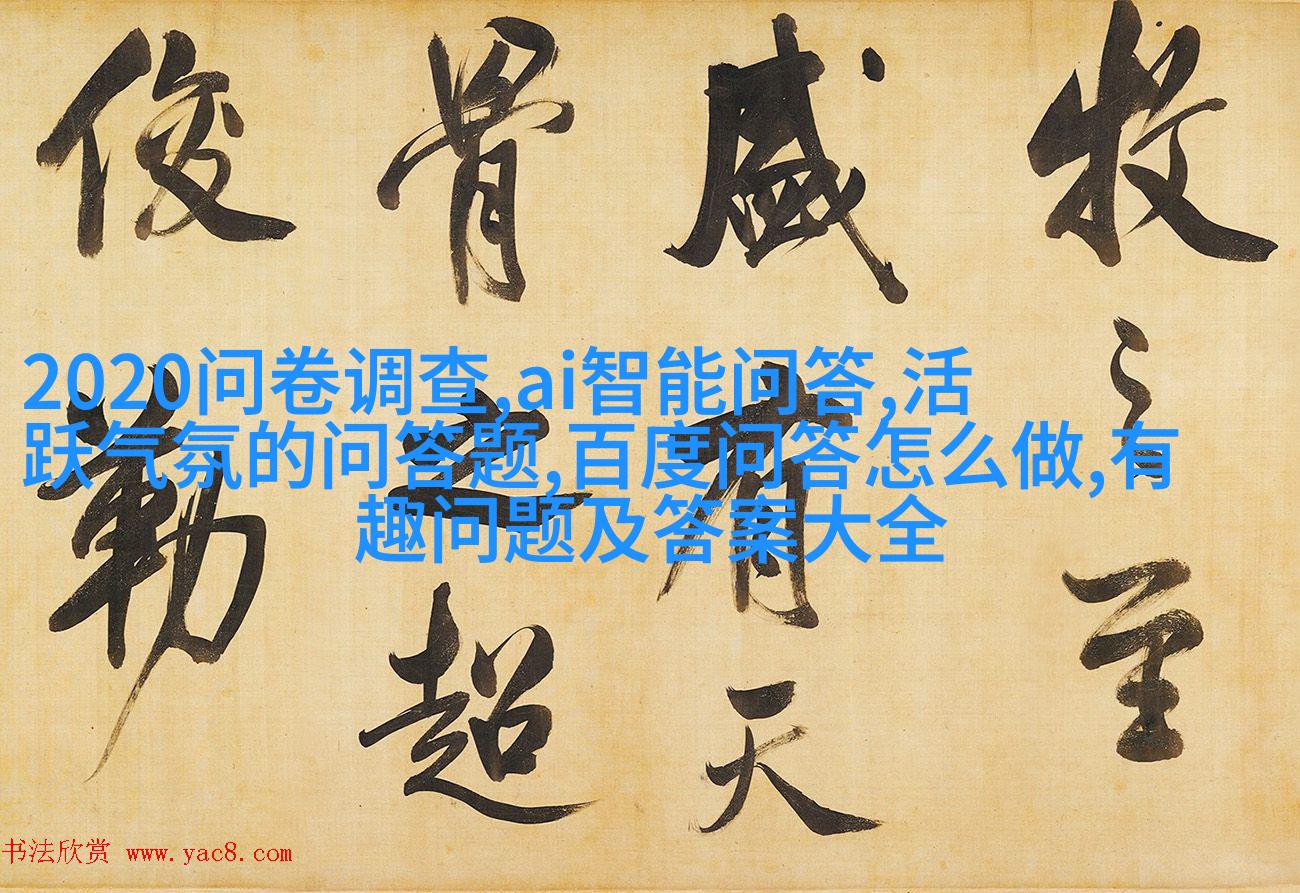 牧之至
盛有天
骨之超
俊勒
2020问卷调查,ai智能问答,活
跃气氛的问答题,百度问答怎么做,有
趣问题及答案大全
书法欣赏 www.yac8.com